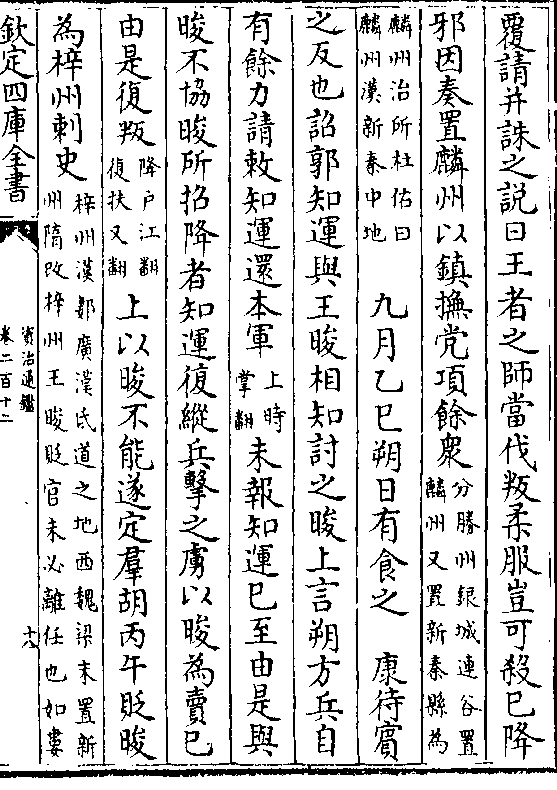 覆請并誅之說曰王者之師當伐叛柔服豈可殺已降
邪因奏置麟州以鎮撫党項餘衆分勝州銀城連谷置
麟州又置新秦縣為
麟州治所杜佑曰
麟州漢新秦中地
九月乙巳朔日有食之　康待賓
之反也詔郭知運與王晙相知討之晙上言朔方兵自
有餘力請敕知運還本軍上時
掌翻未報知運已至由是與
晙不協晙所招降者知運復縱兵擊之虜以晙為賣已
由是復叛降戶江翻
復扶又翻上以晙不能遂定羣胡丙午貶晙
為梓州刺史梓州漢郪廣漢氐道之地西魏梁末置新
州隋改梓州王晙貶官未必離任也如婁
欽定四庫全書
資治通鑑
卷二百十二
六